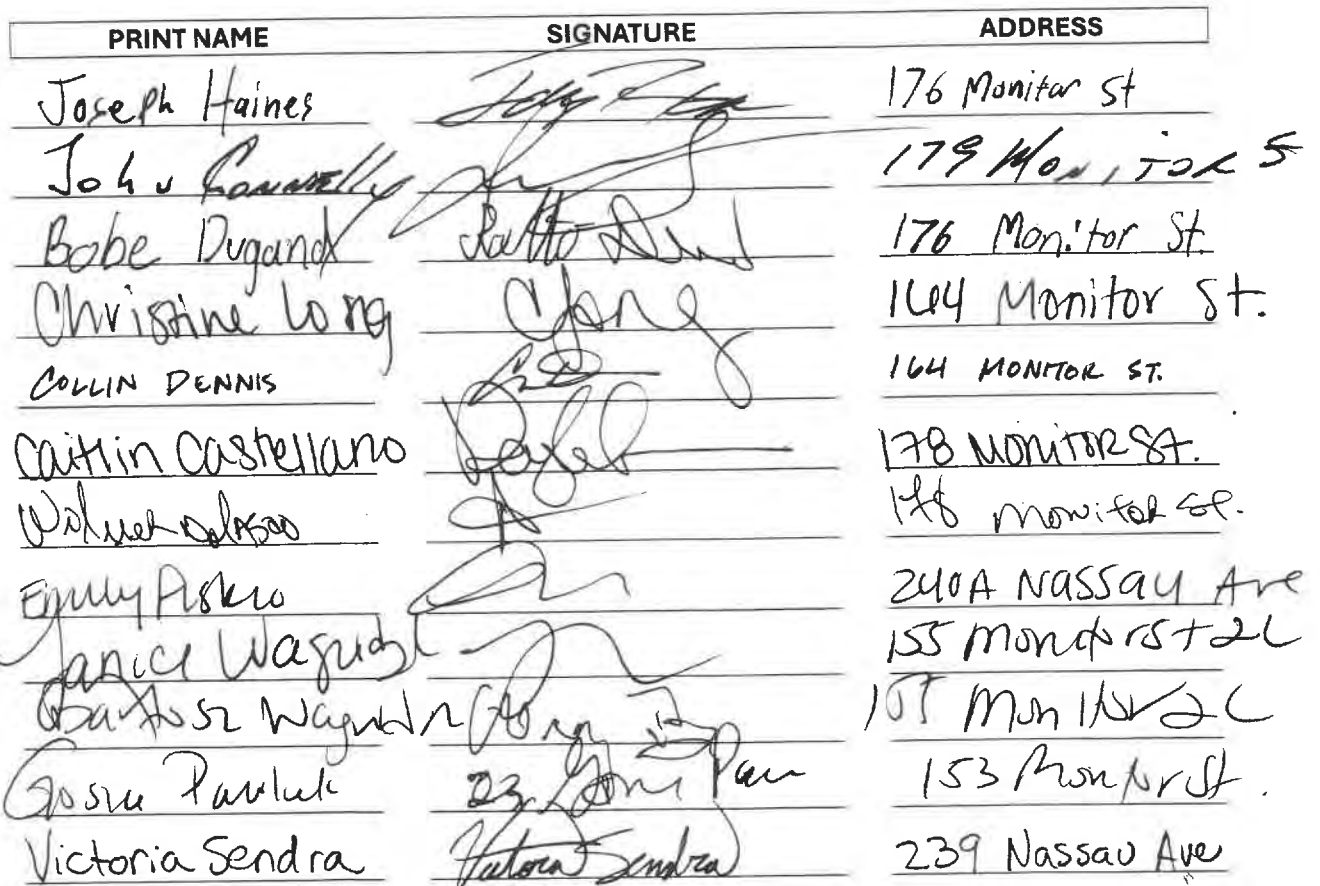 PRINT NAME SIGNATURE ADDRESS
Joseph Haines 176 Monitor St
John Connelly 179 MONITOR S
Bobe Dugand 176 Monitor St.
Christine Long CLong 164 Monitor St.
COLLIN DENNIS 164 MONITOR ST.
Caitlin Castellano 178 MONITOR ST.
178 Monitor St.
Emily 240A Nassau Ave
Janice 155 Monitor St 2L
Bartosz 155 Monitor 2L
Gosia Pawluk 153 Monitor St.
Victoria Sendra Victoria Sendra 239 Nassau Ave